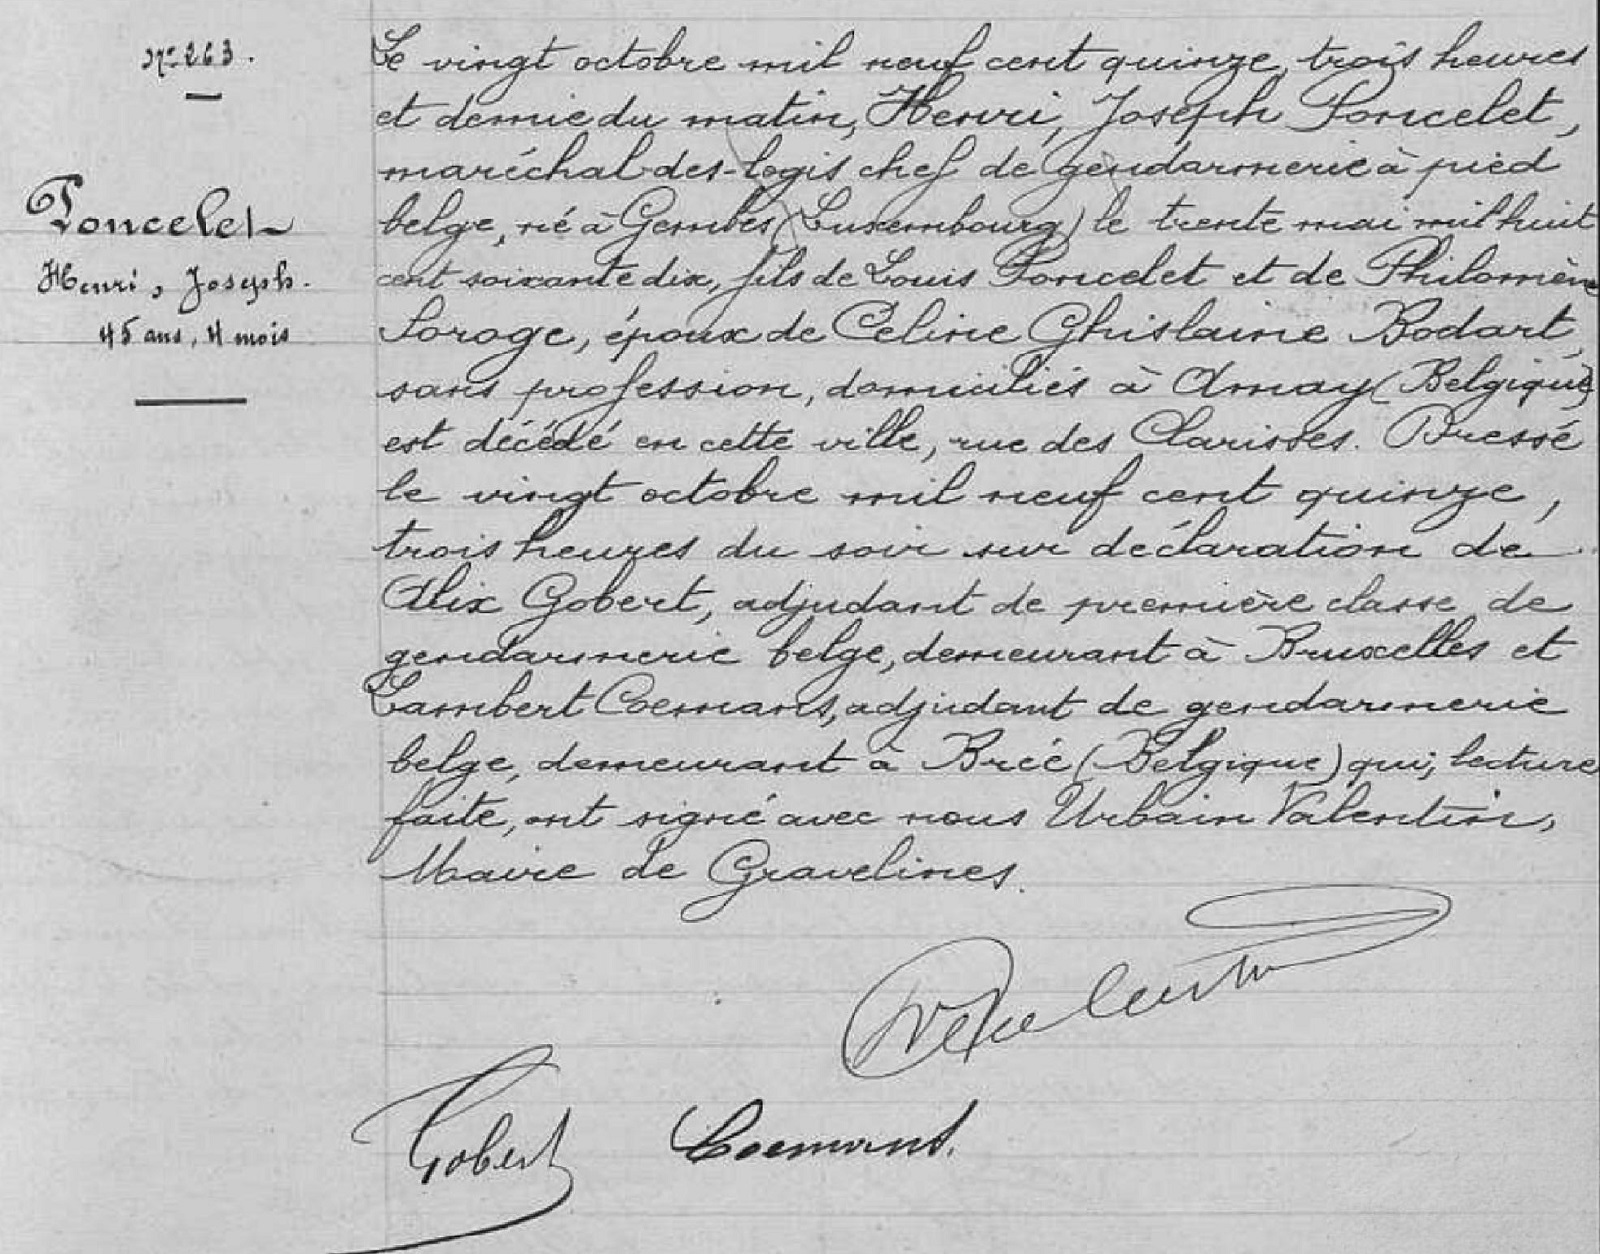 N° 263.
Poncelet
Henri, Joseph.
45 ans, 4 mois
Le vingt octobre mil neuf cent quinze, trois heures
et demie du matin, Henri, Joseph Poncelet,
maréchal-des-logis chef de gendarmerie à pied
belge, né à Gembes (Luxembourg) le trente mai mil huit
cent soixante dix, fils de Louis Poncelet et de Philomène
Soroge, époux de Céline Ghislaine Bodart,
sans profession, domiciliés à Amay (Belgique)
est décédé en cette ville, rue des Clarisses. Dressé
le vingt octobre mil neuf cent quinze,
trois heures du soir sur déclaration de
Alix Gobert, adjudant de première classe de
gendarmerie belge, demeurant à Bruxelles et
Lambert Coemans, adjudant de gendarmerie
belge, demeurant à Brée (Belgique) qui, lecture
faite, ont signé avec nous Urbain Valentin,
Maire de Gravelines.
Valentin
Gobert Coemans.